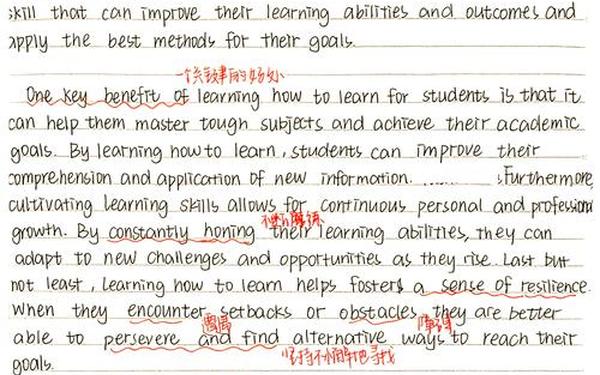 skill that can improve their learning abilities and outcomes and
apply the best methods for their goals.
一个关键的好处
One key benefit of learning how to learn for students is that it
can help them master tough subjects and achieve their academic
goals. By learning how to learn, students can improve their
comprehension and application of new information. ......... Furthermore,
cultivating learning skills allows for continuous personal and professional
不断磨练
growth. By constantly honing their learning abilities, they can
adapt to new challenges and opportunities as they rise. Last but
not least, learning how to learn helps fosters a sense of resilience.
When they encounter setbacks or obstacles, they are better
遭遇 障碍
able to persevere and find alternative ways to reach their
坚持不懈 寻找
goals.